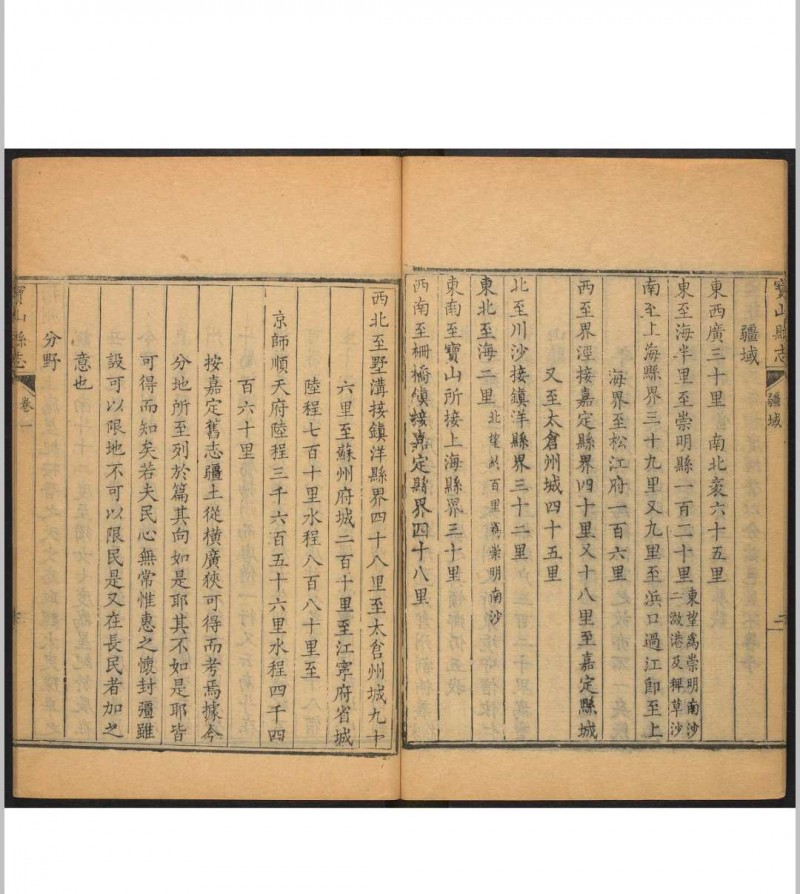 寶山縣志
疆域
疆域
東西廣三十里 南北袤六十五里
東至海半里至崇明縣一百二十里東望爲崇明南沙
二漵港及稗草沙
南至上海縣界三十九里又九里至浜口過江卽至上
海界至松江府一百六里
西至界涇接嘉定縣界四十里又十八里至嘉定縣城
又至太倉州城四十五里
北至川沙接鎭洋縣界三十二里
東北至海二里北望於百里爲崇明南沙
東南至寶山所接上海縣界三十里
西南至柵橋鎭接嘉定縣界四十八里
西北至墅溝接鎭洋縣界四十八里至太倉州城九十
六里至蘇州府城二百十里至江寧府省城
陸程七百十里水程八百八十里至
京師順天府陸程三千六百五十六里水程四千四
百六十里
按嘉定舊志疆土從橫廣狹可得而考焉據今
分地所至列於篇其向如是耶其不如是耶皆
可得而知矣若夫民心無常惟惠之懷封疆雖
設可以限地不可以限民是又在長民者加之
意也
分野
寶山縣志
卷一